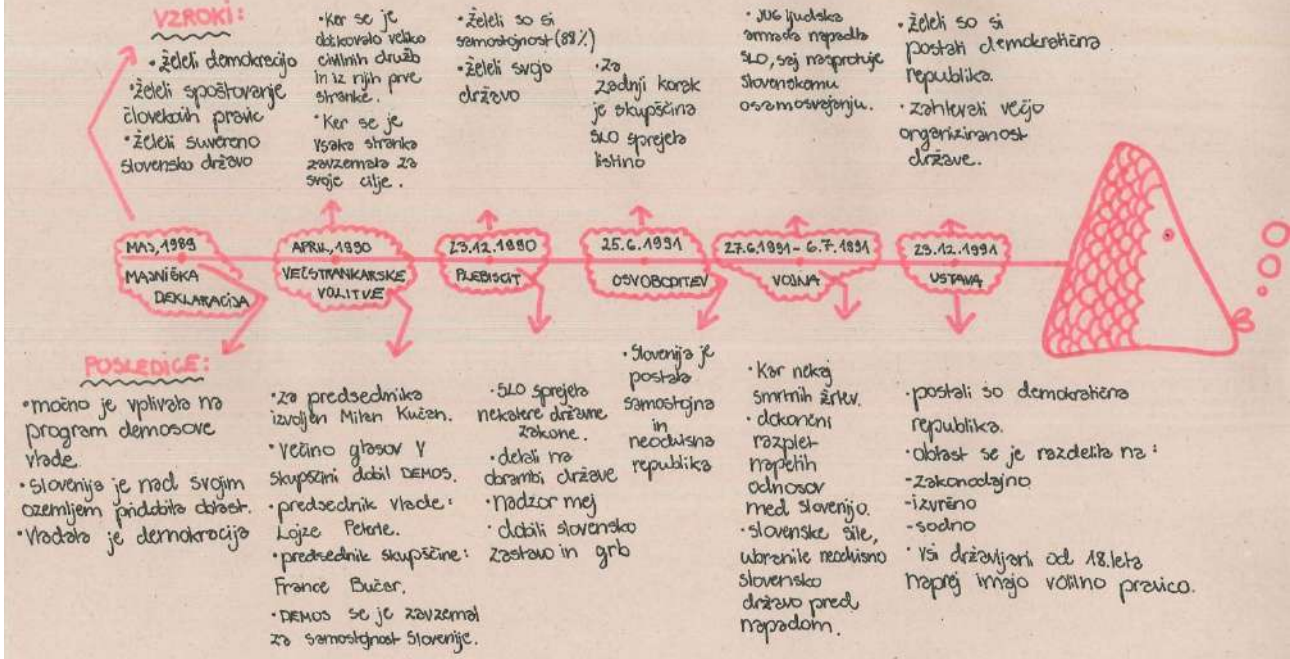 VZROKI:
• želeli demokracijo
• želeli spoštovanje
človekovih pravic
• želeli suvereno
slovensko državo
• Ker se je
oblikovalo veliko
civilnih družb
in iz njih prve
stranke.
• Ker se je
vsaka stranka
zavzemala za
svoje cilje.
• želeli so si
samostojnost (88%)
• želeli svojo
državo
• za
zadnji korak
je skupščina
SLO sprejela
listino
• JUG ljudska
armada napadla
SLO, saj nasprotuje
slovenskemu
osamosvajanju.
• želeli so si
postati demokratična
republika.
• zahtevali večjo
organiziranost
države.
MAJ, 1989
MAJNIŠKA
DEKLARACIJA
APRIL, 1990
VEČSTRANKARSKE
VOLITVE
23.12.1990
PLEBISCIT
25.6.1991
OSVOBODITEV
27.6.1991 - 6.7.1991
VOJNA
23.12.1991
USTAVA
POSLEDICE:
• močno je vplivala na
program demosove
vlade.
• Slovenija je nad svojim
ozemljem pridobila oblast.
• Vladala je demokracija
• za predsednika
izvoljen Milan Kučan.
• Večino glasov v
skupščini dobil DEMOS.
• predsednik vlade:
Lojze Peterle.
• predsednik skupščine:
France Bučar.
• DEMOS se je zavzemal
za samostojnost Slovenije.
• SLO sprejela
nekatere državne
zakone.
• delali na
obrambi države
• nadzor mej
• dobili slovensko
zastavo in grb
• Slovenija je
postala
samostojna
in
neodvisna
republika
• Kar nekaj
smrtnih žrtev.
• dokončni
razplet
napetih
odnosov
med slovenijo.
• slovenske sile,
ubranile neodvisno
slovensko
državo pred
napadom.
• postali so demokratična
republika.
• oblast se je razdelila na:
- zakonodajno
- izvršno
- sodno
• Vsi državljani od 18.leta
naprej imajo volilno pravico.